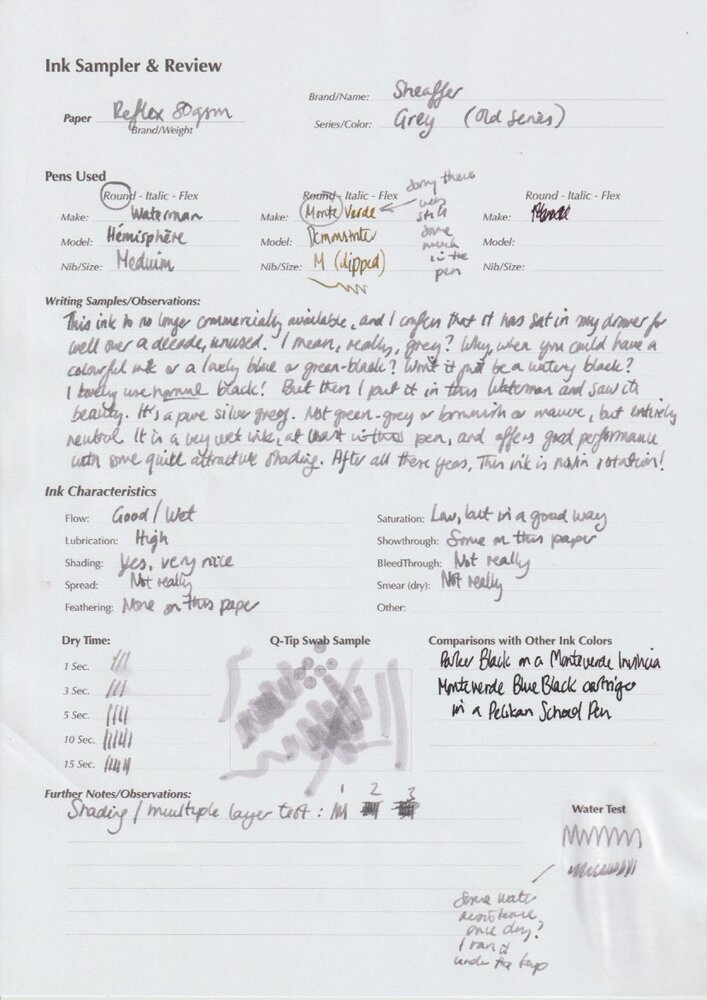 Ink Sampler & Review
Paper Reflex 80gsm
Brand/Weight
Brand/Name: Sheaffer
Series/Color: Grey (Old Series)
Pens Used
Round - Italic - Flex
Make: Waterman
Model: Hémisphère
Nib/Size: Medium
Round - Italic - Flex
Make: Monte Verde
Model: Demonstrator
Nib/Size: M (dipped)
Sorry there
was
still
some
in the
pen
Round - Italic - Flex
Make:
Model:
Nib/Size:
Writing Samples/Observations:
This ink is no longer commercially available, and I confess that it has sat in my drawer for
well over a decade, unused. I mean, really, grey? Why, when you could have a
colourful ink or a lovely blue or green-black? Won't it just be a watery black?
I barely use normal black! But then I put it in this Waterman and saw its
beauty. It's a pure silver grey. Not green-grey or brownish or mauve, but entirely
neutral. It is a very wet ink, at least in this pen, and offers good performance
with some quite attractive shading. After all these years, this ink is now in rotation!
Ink Characteristics
Flow: Good / Wet
Lubrication: High
Shading: Yes, very nice
Spread: Not really
Feathering: None on this paper
Saturation: Low, but in a good way
Showthrough: Some on this paper
BleedThrough: Not really
Smear (dry): Not really
Other:
Dry Time:
1 Sec.
3 Sec.
5 Sec.
10 Sec.
15 Sec.
Q-Tip Swab Sample
Comparisons with Other Ink Colors
Parker Black in a Monteverde Invincia
Monteverde Blue Black cartridge
in a Pelikan School Pen
Further Notes/Observations:
Shading / multiple layer test: 1 2 3
Water Test
Some water
resistance
once dry?
I ran it
under the tap